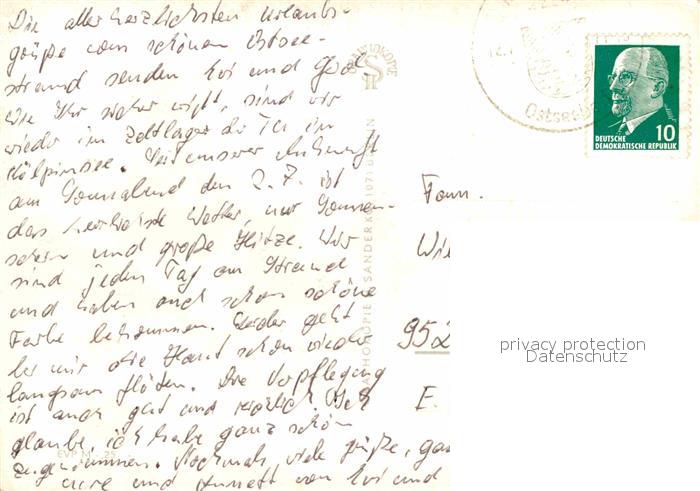 Die allerherzlichsten Urlaubs-
grüße vom schönen Ostsee-
strand senden Evi und
Wie Ihr sicher wißt, sind wir
wieder im Zeltlager der TU in
Kölpinsee. Seit unserer Ankunft
am Sonnabend den 2.7. ist
das herrlichste Wetter, nur Sonnen-
schein und große Hitze. Wir
sind jeden Tag am Strand
und haben auch schon schöne
Farbe bekommen. Leider geht
bei mir die Haut schon wieder
langsam flöten. Die Verpflegung
ist auch gut und reichlich. Ich
glaube, ich habe ganz schön
zugenommen. Nochmals viele Grüße,
und Annett von Evi und
EVP M -.25
Ostsee
DEUTSCHE
DEMOKRATISCHE REPUBLIK
10
Fam.
Wil
952
E.
privacy protection
Datenschutz